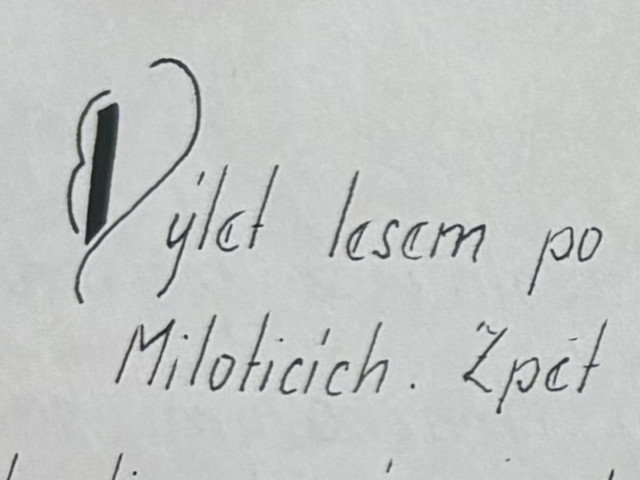 Výlet lesem po
Miloticích. Zpět